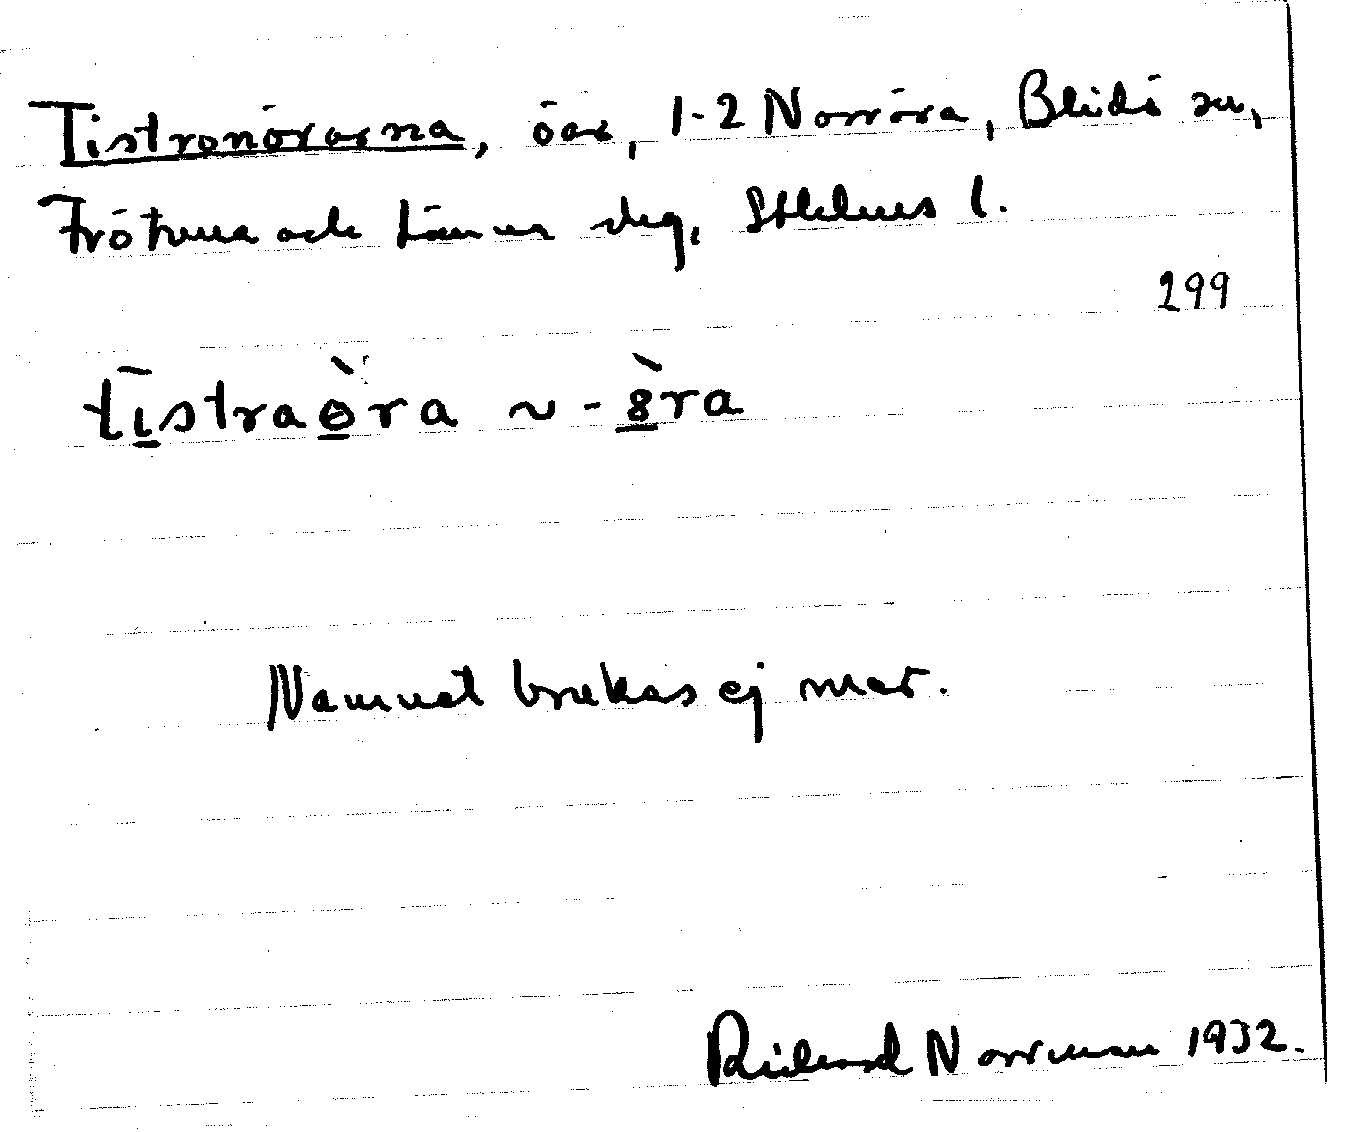 Tistronörarna, öar, 1-2 Norröra, Blidö sn,
Frötuna och Länna skg, Sthlms l.
299
tīstraö̀ra ~ -8̀ra
Namnet brukas ej mer.
Rickard Norrman 1932.